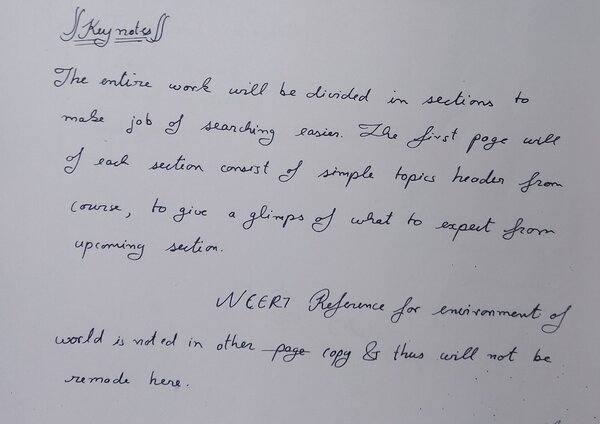 Key notes
The entire work will be divided in sections to
make job of searching easier. The first page will
of each section consist of simple topics header from
course, to give a glimps of what to expect from
upcoming section.
NCERT Reference for environment of
world is noted in other page copy & thus will not be
remade here.